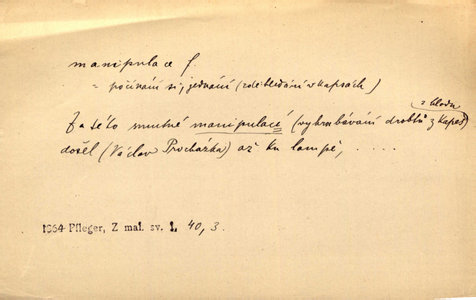 manipulace f.
= počínání si, jednání (zde: hledání v kapsách)
z hladu
Za této smutné manipulací (vyhrabávání drobtů z kapes)
došel (Václav Procházka) až ku lampě, . . . .
1864 Pfleger, Z mal. sv. 1, 40, 3.